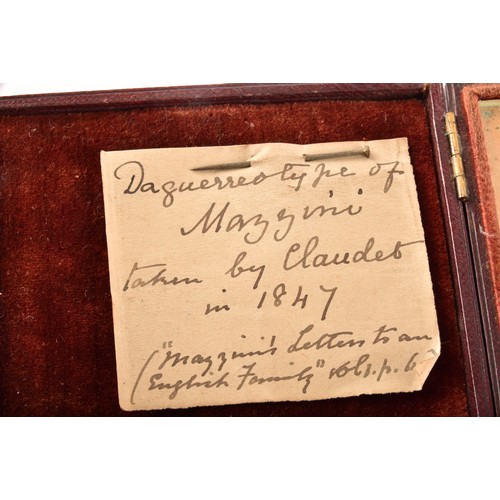 Daguerreotype of
Mazzini
taken by Claudet
in 1847
("Mazzini's Letters to an
English Family" vol. 1. p. 6